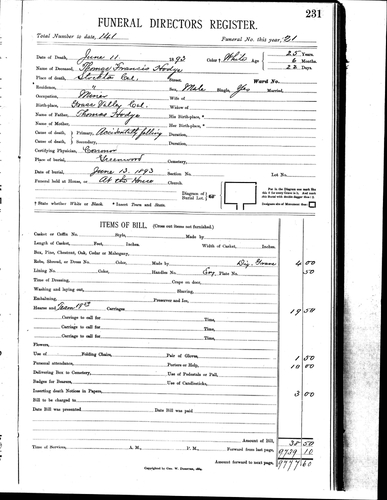 231
FUNERAL DIRECTORS REGISTER.
Total Number to date, 141 Funeral No. this year, 21
Date of Death, June 11 1893 Color † White Age 25 Years
6 Months
22 Days
Name of Deceased, Thomas Francis Hodge
Place of death, Stockton Cal. Ward No.
Residence, " Sex, Male Single, Yes Married,
Occupation, Miner Wife of
Birth-place, Grass Valley, Cal. Widow of
Name of Father, Thomas Hodge His Birth-place, *
Name of Mother, Her Birth-place, *
Cause of death Primary, Accidentally falling Duration,
Cause of death Secondary, Duration,
Certifying Physician, Coroner
Place of burial, Cemetery,
Date of burial, June 13 1893 Section No. Lot No.
Funeral held at House, or At the House Church
Diagram of Burial Lot.
† State whether White or Black. * Insert Town and State.
ITEMS OF BILL. (Cross out items not furnished.)
Casket or Coffin No. Style,
Length of Casket, Feet, Inches. Width of Casket, Inches.
Box, Pine, Chestnut, Oak, Cedar or Mahogany,
Robe, Shroud, or Dress No. Color, Made by Dig. Grave 4 00
Lining No. Color, Handles No. Plate No. 50
Time of Dressing, Craps on door,
Washing and laying out, Shaving,
Embalming, Preserve and Ice,
Hearse and Carriages, 19 50
Carriage to call for Time,
Carriage to call for Time,
Carriage to call for Time,
Carriage to call for Time,
Flowers,
Use of Folding Chairs, Pair of Gloves, 1 50
Personal attendance, Porters or Help, 10 00
Delivering Box to Cemetery, Use of Pedestals or Pall,
Badges for Bearers, Use of Candlesticks,
Inserting death Notices in Papers, 3 00
Bill to be charged to
Date Bill was presented Date Bill was paid
Amount of Bill, 38 50
Time of Services, A. M., P. M., Forward from last page, 9739 10
Amount forward to next page, 9777 60